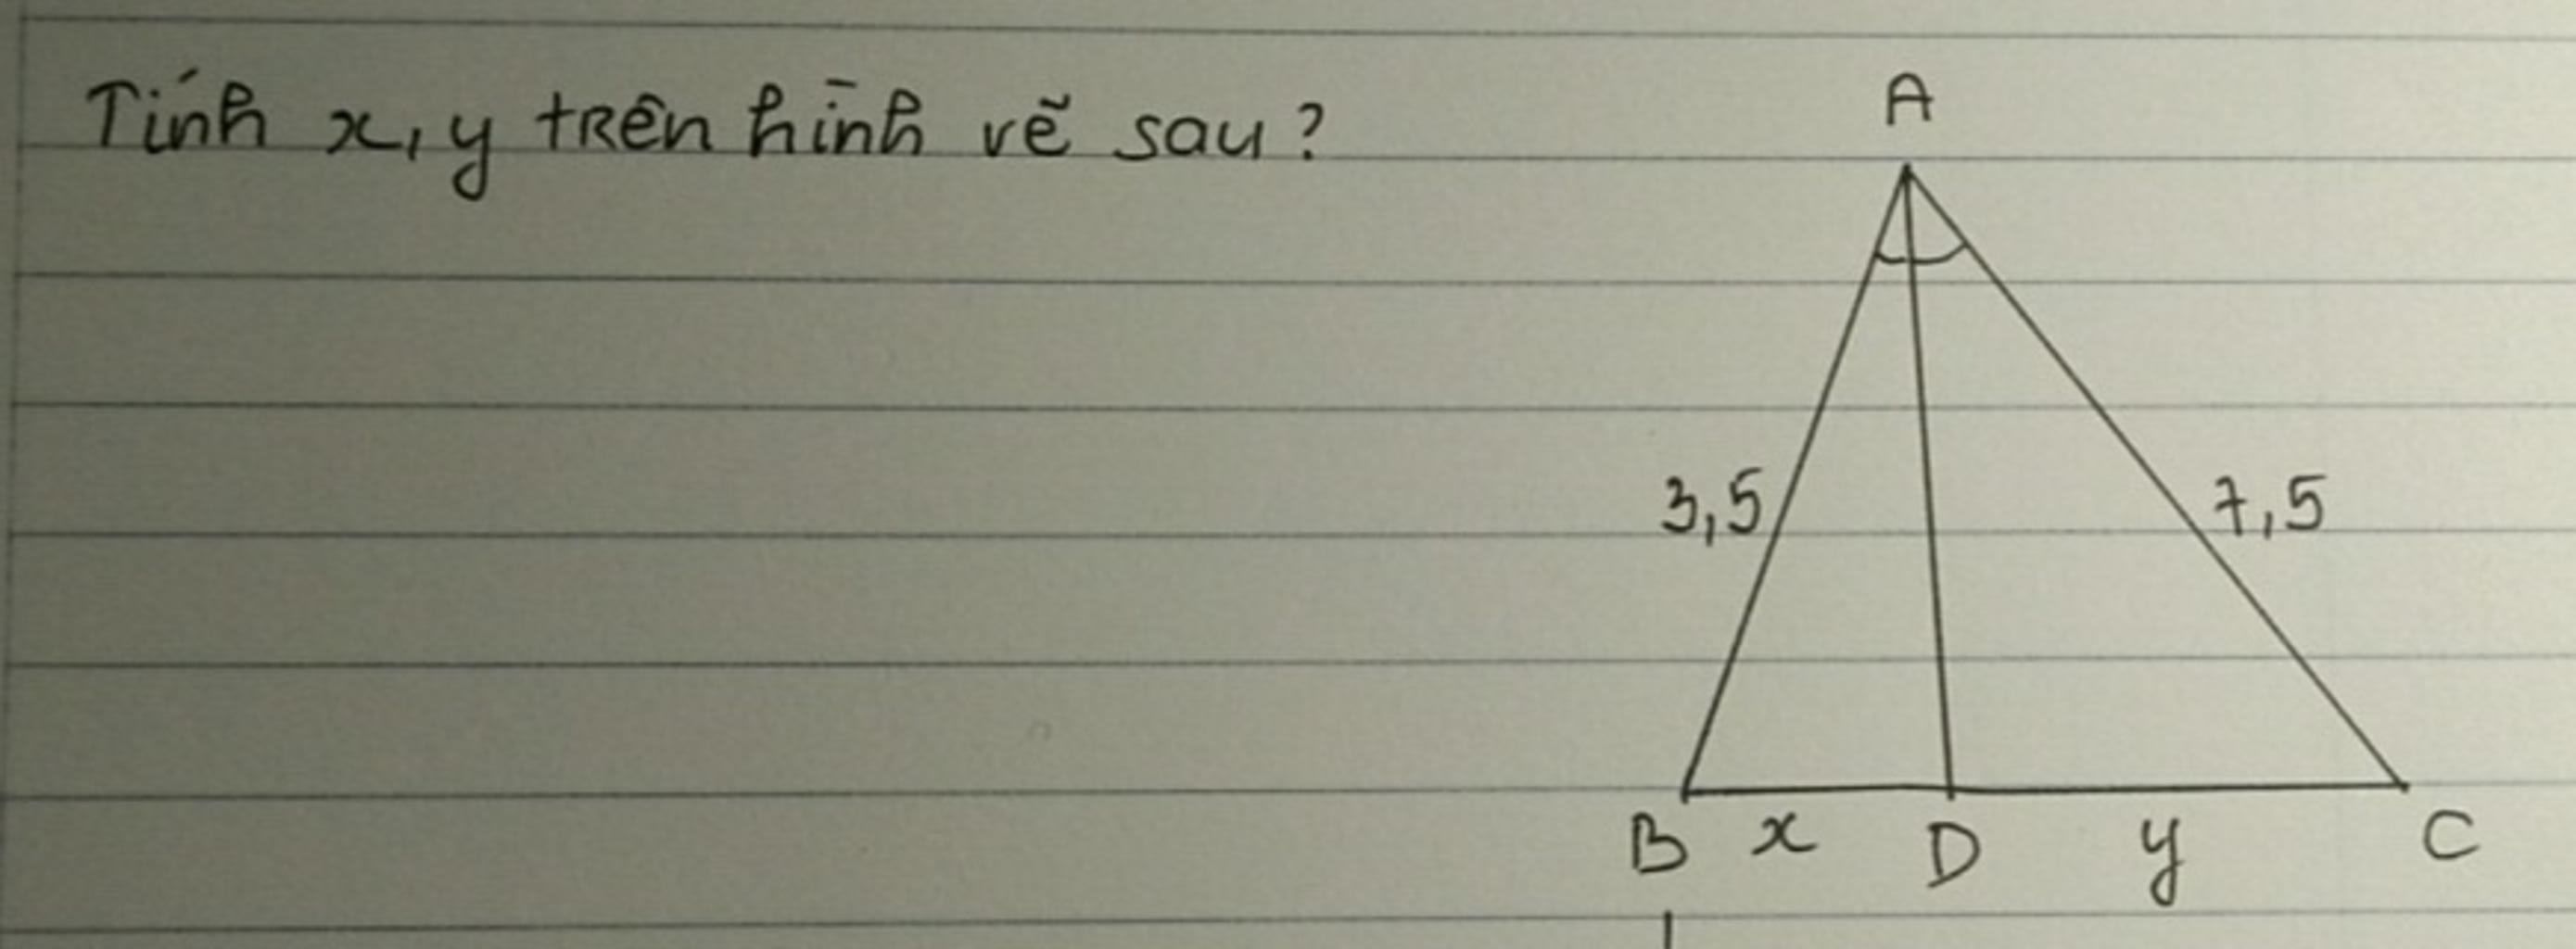 Tính x, y trên hình vẽ sau?
A
3,5
7,5
B x D y C